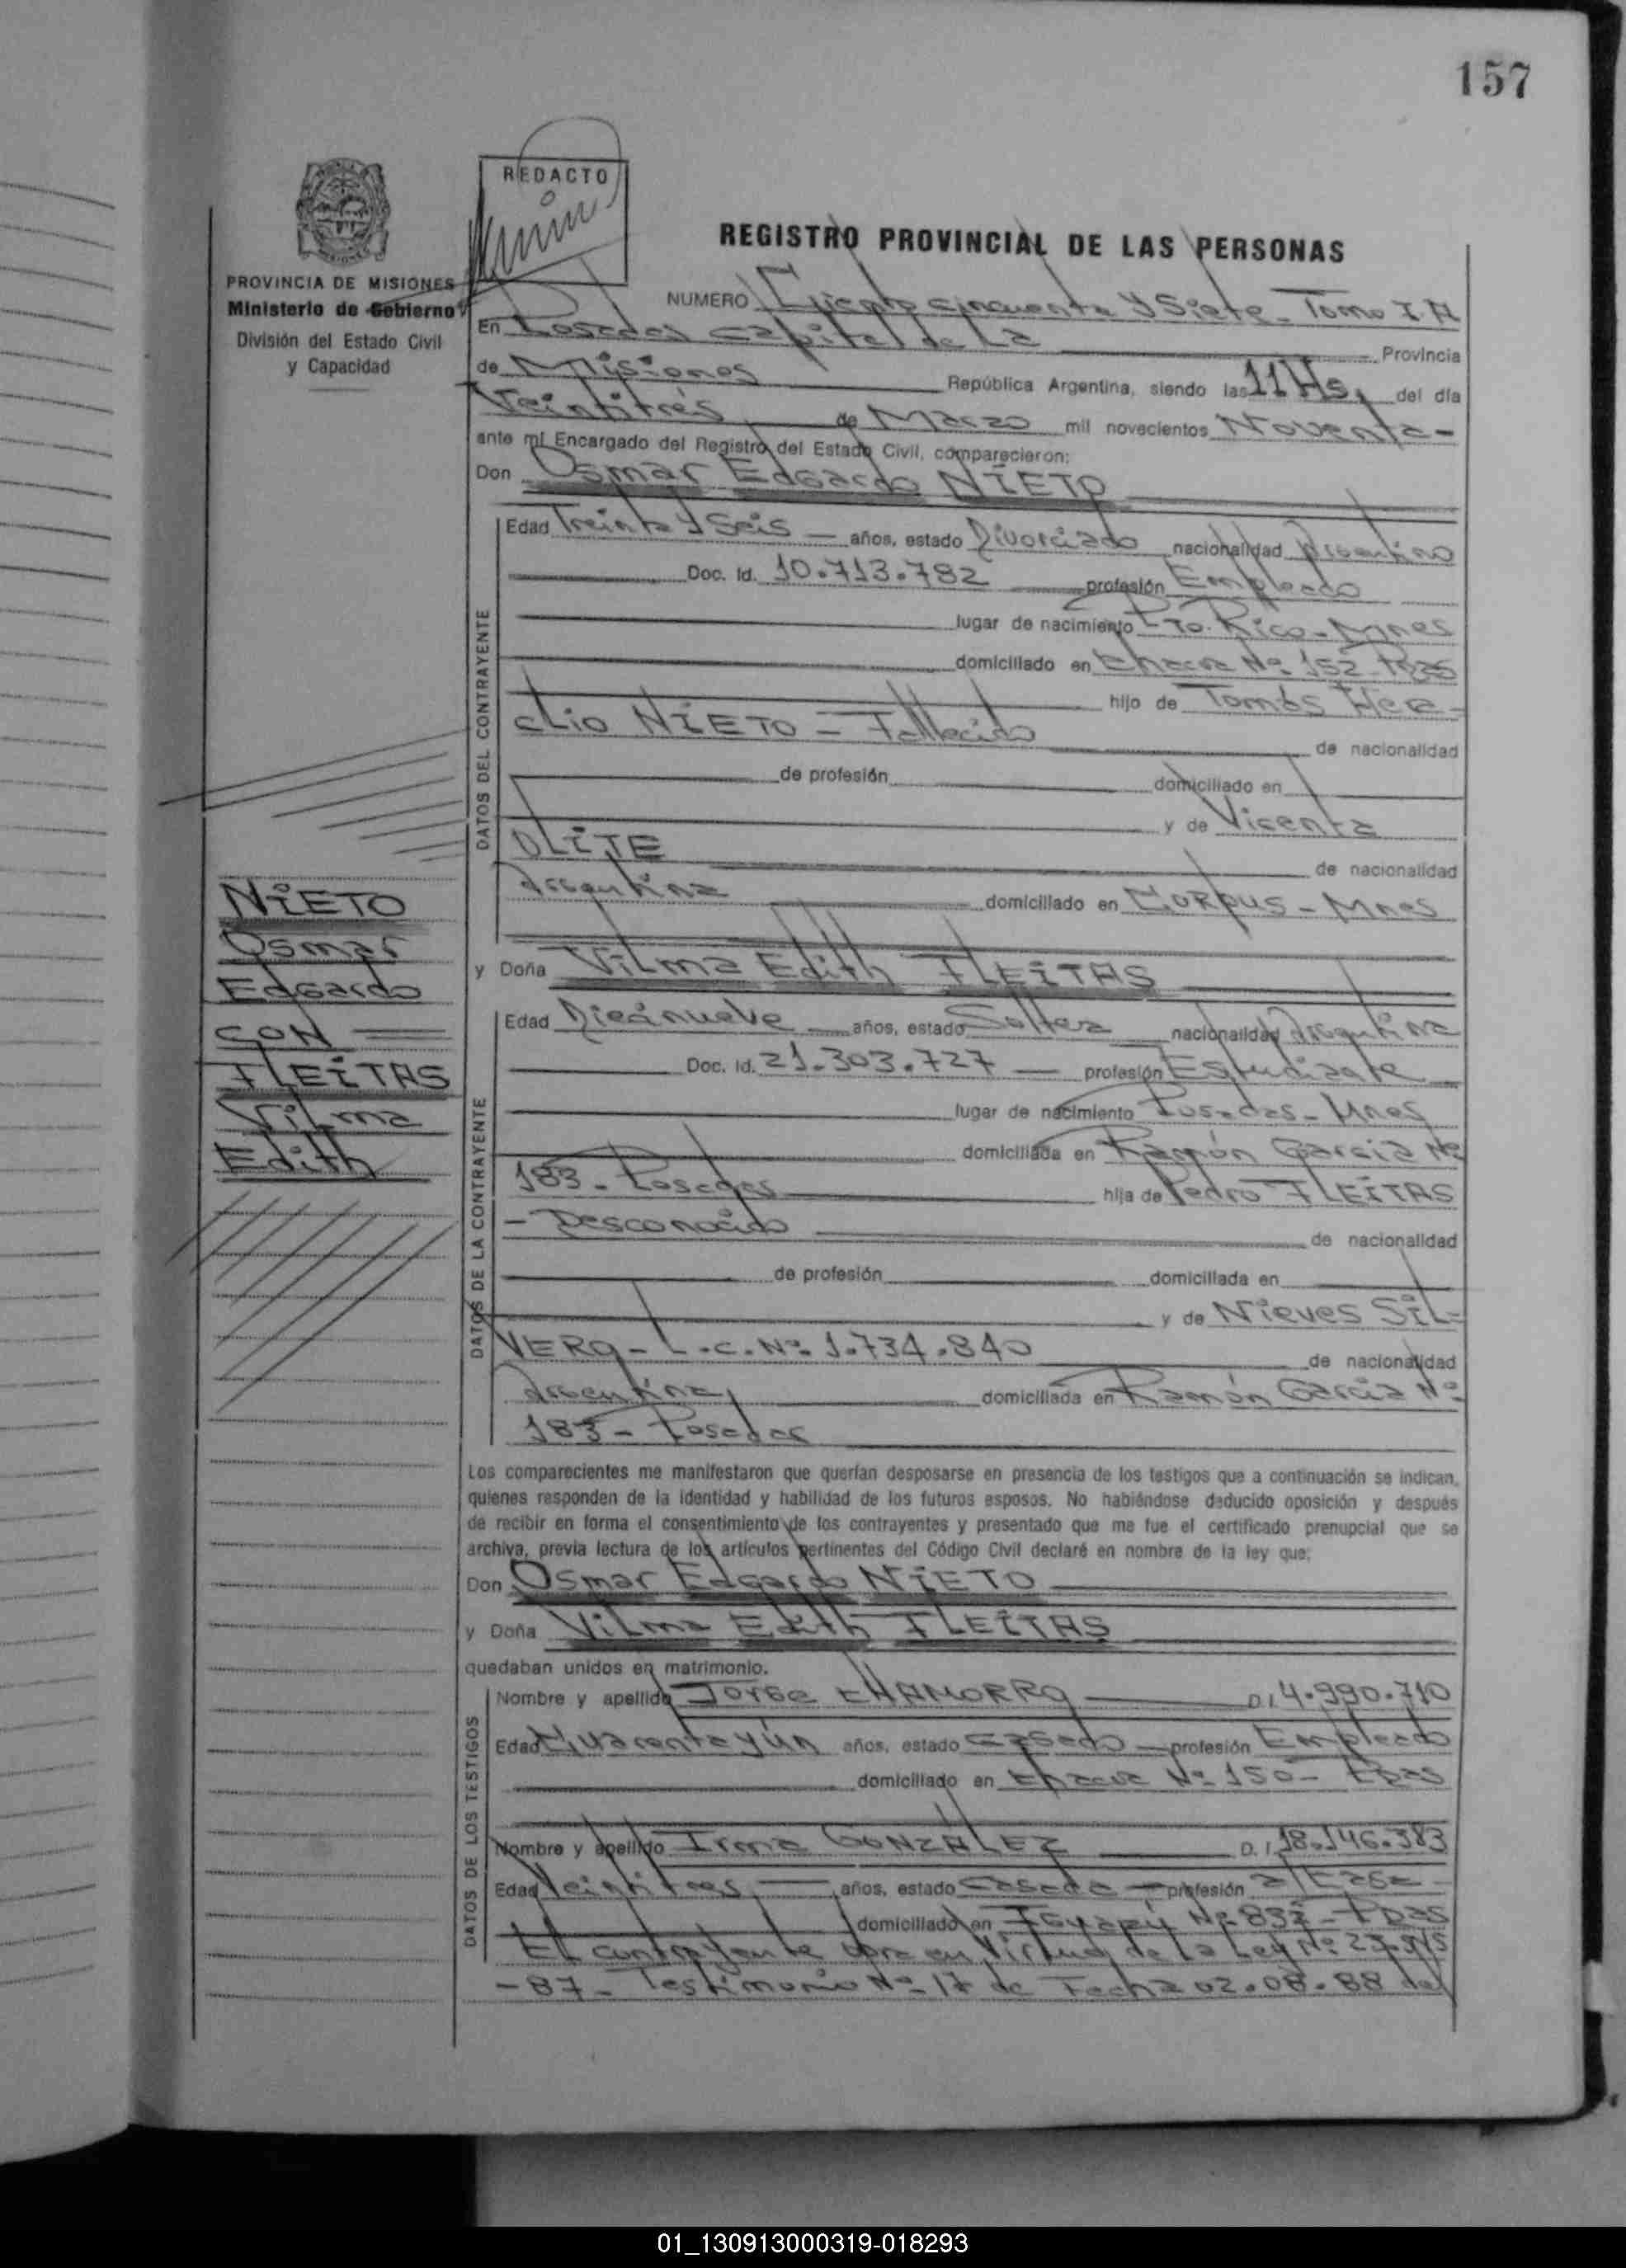 157
REDACTO
REGISTRO PROVINCIAL DE LAS PERSONAS
PROVINCIA DE MISIONES
Ministerio de Gobierno
División del Estado Civil
y Capacidad
NUMERO Ciento cincuenta y Siete - Tomo I A
En Posadas capital de La Provincia
de Misiones República Argentina, siendo las 11 Hs, del día
Veintitrés de Marzo mil novecientos Noventa-
ante mí Encargado del Registro del Estado Civil, comparecieron:
Don Osmar Edgardo NIETO
DATOS DEL CONTRAYENTE
Edad Treinta y Seis - años, estado Divorciado nacionalidad Argentino
Doc. Id. 10.713.782 profesión Empleado
lugar de nacimiento Pto. Rico - Mnes
domiciliado en Chacra Nº 152 - Pdas
hijo de Tomás Her-
clio NIETO - Fallecido de nacionalidad
de profesión domiciliado en
y de Vicenta
OLITE de nacionalidad
Argentina domiciliado en Corpus - Mnes
NIETO
Osmar
Edgardo
CON
FLEITAS
Vilma
Edith
y Doña Vilma Edith FLEITAS
DATOS DE LA CONTRAYENTE
Edad Diecinueve años, estado Soltera nacionalidad Argentina
Doc. Id. 21.303.727 - profesión Estudiante
lugar de nacimiento Posadas - Mnes
domiciliada en Ramón García Nº
183 - Posadas hija de Pedro FLEITAS
- Desconocido de nacionalidad
de profesión domiciliada en
y de Nieves SIL=
VERO - L.C. Nº 1.734.840 de nacionalidad
Argentina, domiciliada en Ramón García Nº
183 - Posadas
Los comparecientes me manifestaron que querían desposarse en presencia de los testigos que a continuación se indican,
quienes responden de la identidad y habilidad de los futuros esposos. No habiéndose deducido oposición y después
de recibir en forma el consentimiento de los contrayentes y presentado que me fue el certificado prenupcial que se
archiva, previa lectura de los artículos pertinentes del Código Civil declaré en nombre de la ley que:
Don Osmar Edgardo NIETO
y Doña Vilma Edith FLEITAS
quedaban unidos en matrimonio.
DATOS DE LOS TESTIGOS
Nombre y apellido Jorge CHAMORRO D.I. 4.990.710
Edad Cuarenta y Un años, estado Casado - profesión Empleado
domiciliado en Chacra Nº 150 - Pdas
Nombre y apellido Irma GONZALEZ D.I. 18.146.383
Edad Veintitres años, estado Casada - profesión a/Casa
domiciliado en Nº 837 - Pdas
El contrayente en Virtud de La Ley Nº
- 87 - Testimonio Nº 17 de Fecha 02.08.88 del
01_130913000319-018293